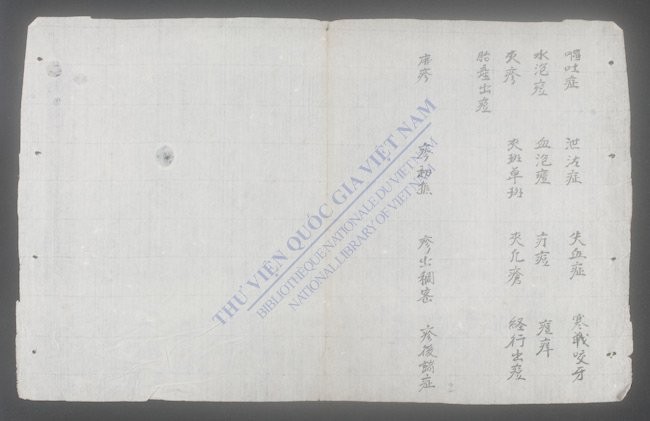 嘔吐症 泄泻症 失血症 寒戰咬牙
水泡痘 血泡痘 疔痘 痘痒
夾疹 夾班 班 夾 瘡 経行出痘
胎產出痘
麻疹 疹初熱 疹出稠密 疹後諸症
THƯ VIỆN QUỐC GIA VIỆT NAM
BIBLIOTHÈQUE NATIONALE DU VIETNAM
NATIONAL LIBRARY OF VIETNAM